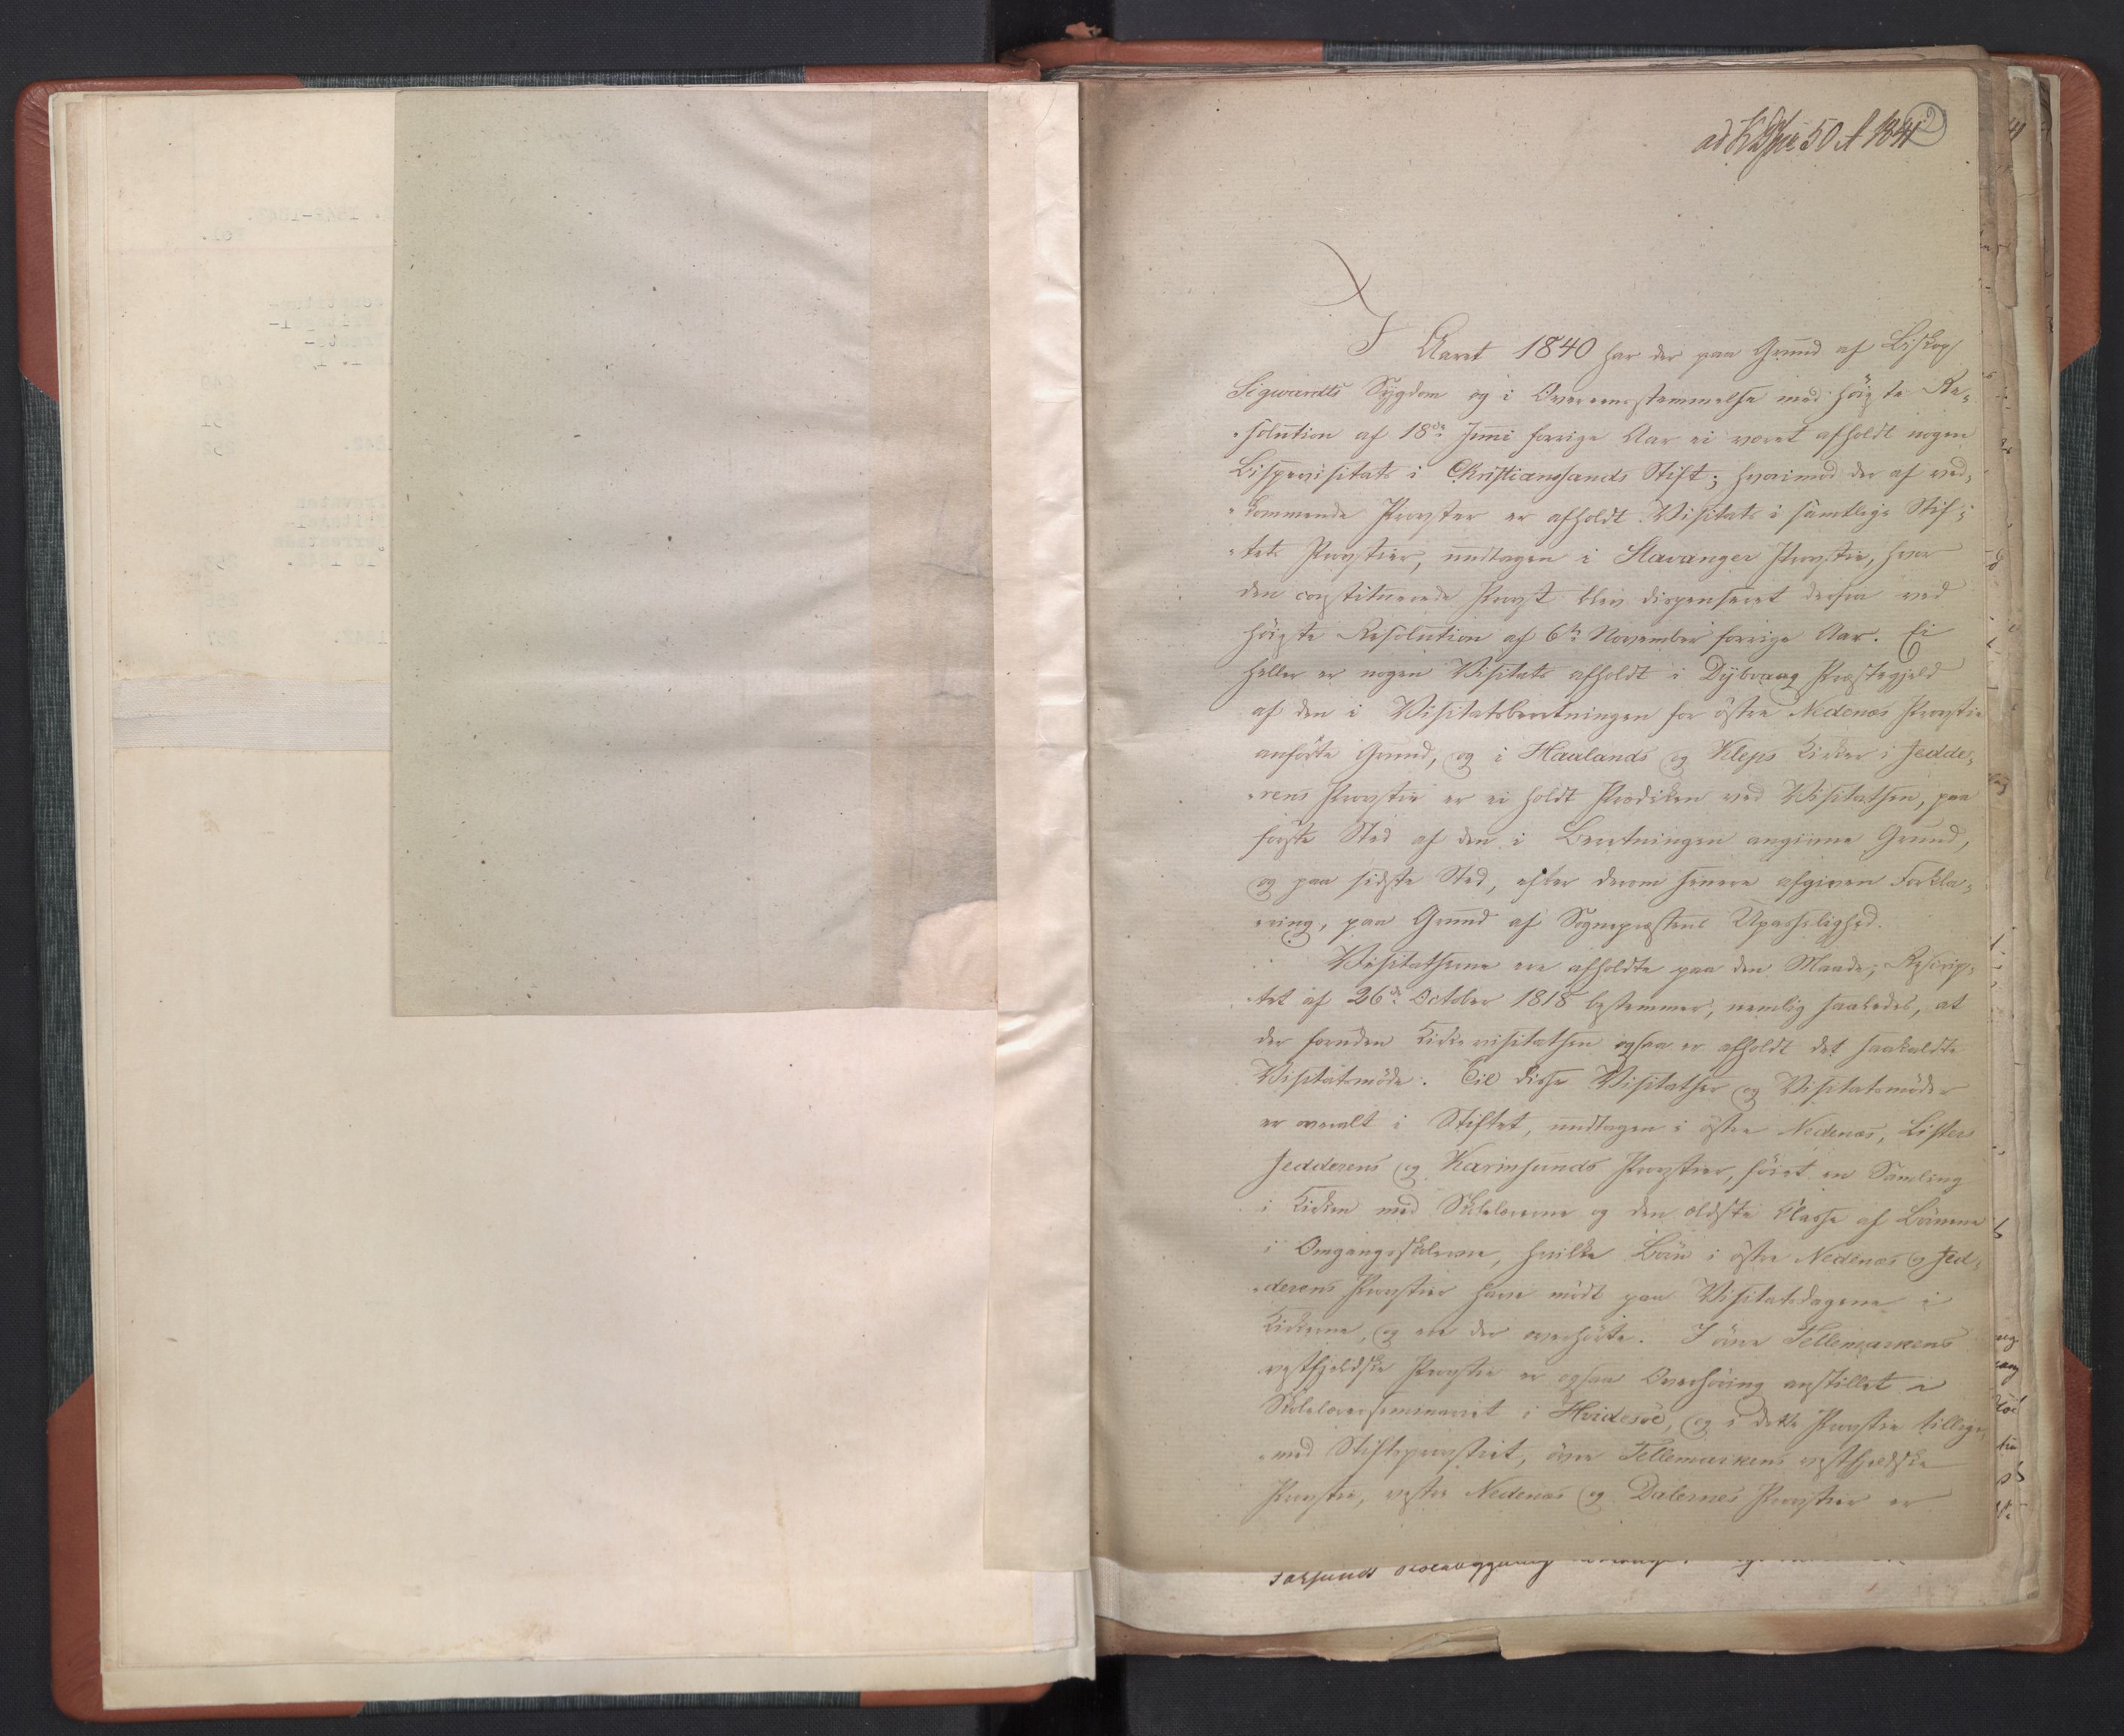 2
I Aaret 1840 har der paa Grund af Biskop
Sigwardts Sygdom og i Overeensstemmelse med høieste Re-
solution af 18de Juni forrige Aar ei været afholdt nogen
Bispevisitats i Christianssands Stift; hvorimod der af ved-
kommende Provster er afholdt Visitats i samtlige Stif-
tets Provstier, undtagen i Stavanger Provstie, hvor
den constituerede Provst blev dispenseret derfra ved
høieste Resolution af 6te November forrige Aar. Ei
heller er nogen Visitats afholdt i Dybvaag Præstegjeld
af den i Visitatsberetningen for østre Nedenæs Provstie
anførte Grund, og i Haalands og Kleps Kirker i Jedde-
rens Provstie er ei holdt Prædiken ved Visitatsen, paa
første Sted af den i Beretningen angivne Grund,
og paa sidste Sted, efter derom senere afgiven Forkla-
ring, paa Grund af Sognepræstens Upasselighed.
Visitatserne ere afholdte paa den Maade, Rescrip-
tet af 26de October 1818 bestemmer, nemlig saaledes, at
der foruden Kirkevisitatsen ogsaa er afholdt det saakaldte
Visitatsmøde. Til disse Visitatser og Visitatsmøder
er overalt i Stiftet, undtagen i østre Nedenæs, Listers
Jedderens og Karmsunds Provstier, føiet en Samling
i Kirken med Skolelærerne og den ældste Classe af Børnene
i Omgangsskolerne, hvilke Børn i østre Nedenæs og Jed-
derens Provstier have mødt paa Visitatsdagene i
Kirkerne, og ere der overhørte. I øvre Tellemarkens
vestfjeldske Provstie er ogsaa Overhøring anstillet i
Skolelærerseminariet i Hvidesøe, og i dette Provstie tillige-
med Stiftsprovstiet, øvre Tellemarkens østfjeldske
Provstie, vestre Nedenæs og Dalernes Provstier er